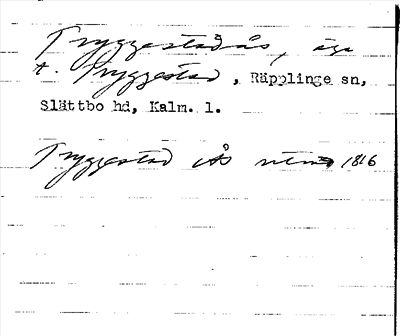 Tryggestad ås, äga
t. Tryggestad, Räpplinge sn,
Slättbo hd, Kalm. l.
Tryggestad ås 1816